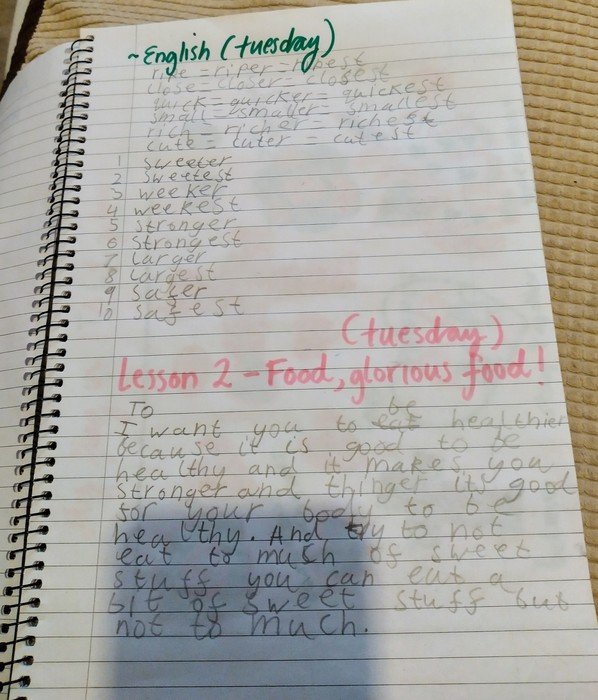 ~English (tuesday)
ripe = riper = ripest
close = closer = closest
quick = quicker = quickest
small = smaller = smallest
rich = richer = richest
cute = cuter = cutest
1 sweeter
2 sweetest
3 weeker
4 weekest
5 stronger
6 strongest
7 larger
8 largest
9 safer
10 safest
(tuesday)
Lesson 2 - Food, glorious food!
To be
I want you to eat healthier
because it is good to be
healthy and it makes you
stronger and thinger its good
for your body to be
healthy. And try to not
eat to much of sweet
stuff you can eat a
bit of sweet stuff but
not to much.